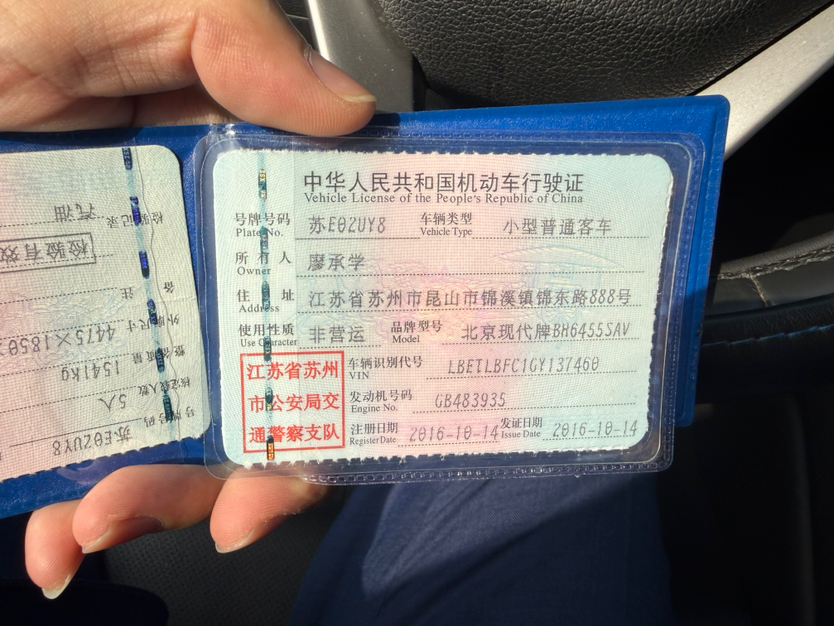 中华人民共和国机动车行驶证
Vehicle License of the People's Republic of China
号牌号码 苏E02UY8 车辆类型 小型普通客车
Plate No. Vehicle Type
所有人 廖承学
Owner
住址 江苏省苏州市昆山市锦溪镇锦东路888号
Address
使用性质 非营运 品牌型号 北京现代牌BH6455SAV
Use Character Model
江苏省苏州
市公安局交
通警察支队
车辆识别代号 LBETLBFC1GY137460
VIN
发动机号码 GB483935
Engine No.
注册日期 2016-10-14 发证日期 2016-10-14
Register Date Issue Date
号牌号码 苏E02UY8
核定载人数 5人
整备质量 1541kg
外廓尺寸 4475×1850
备注
检验有效
检验记录 汽油